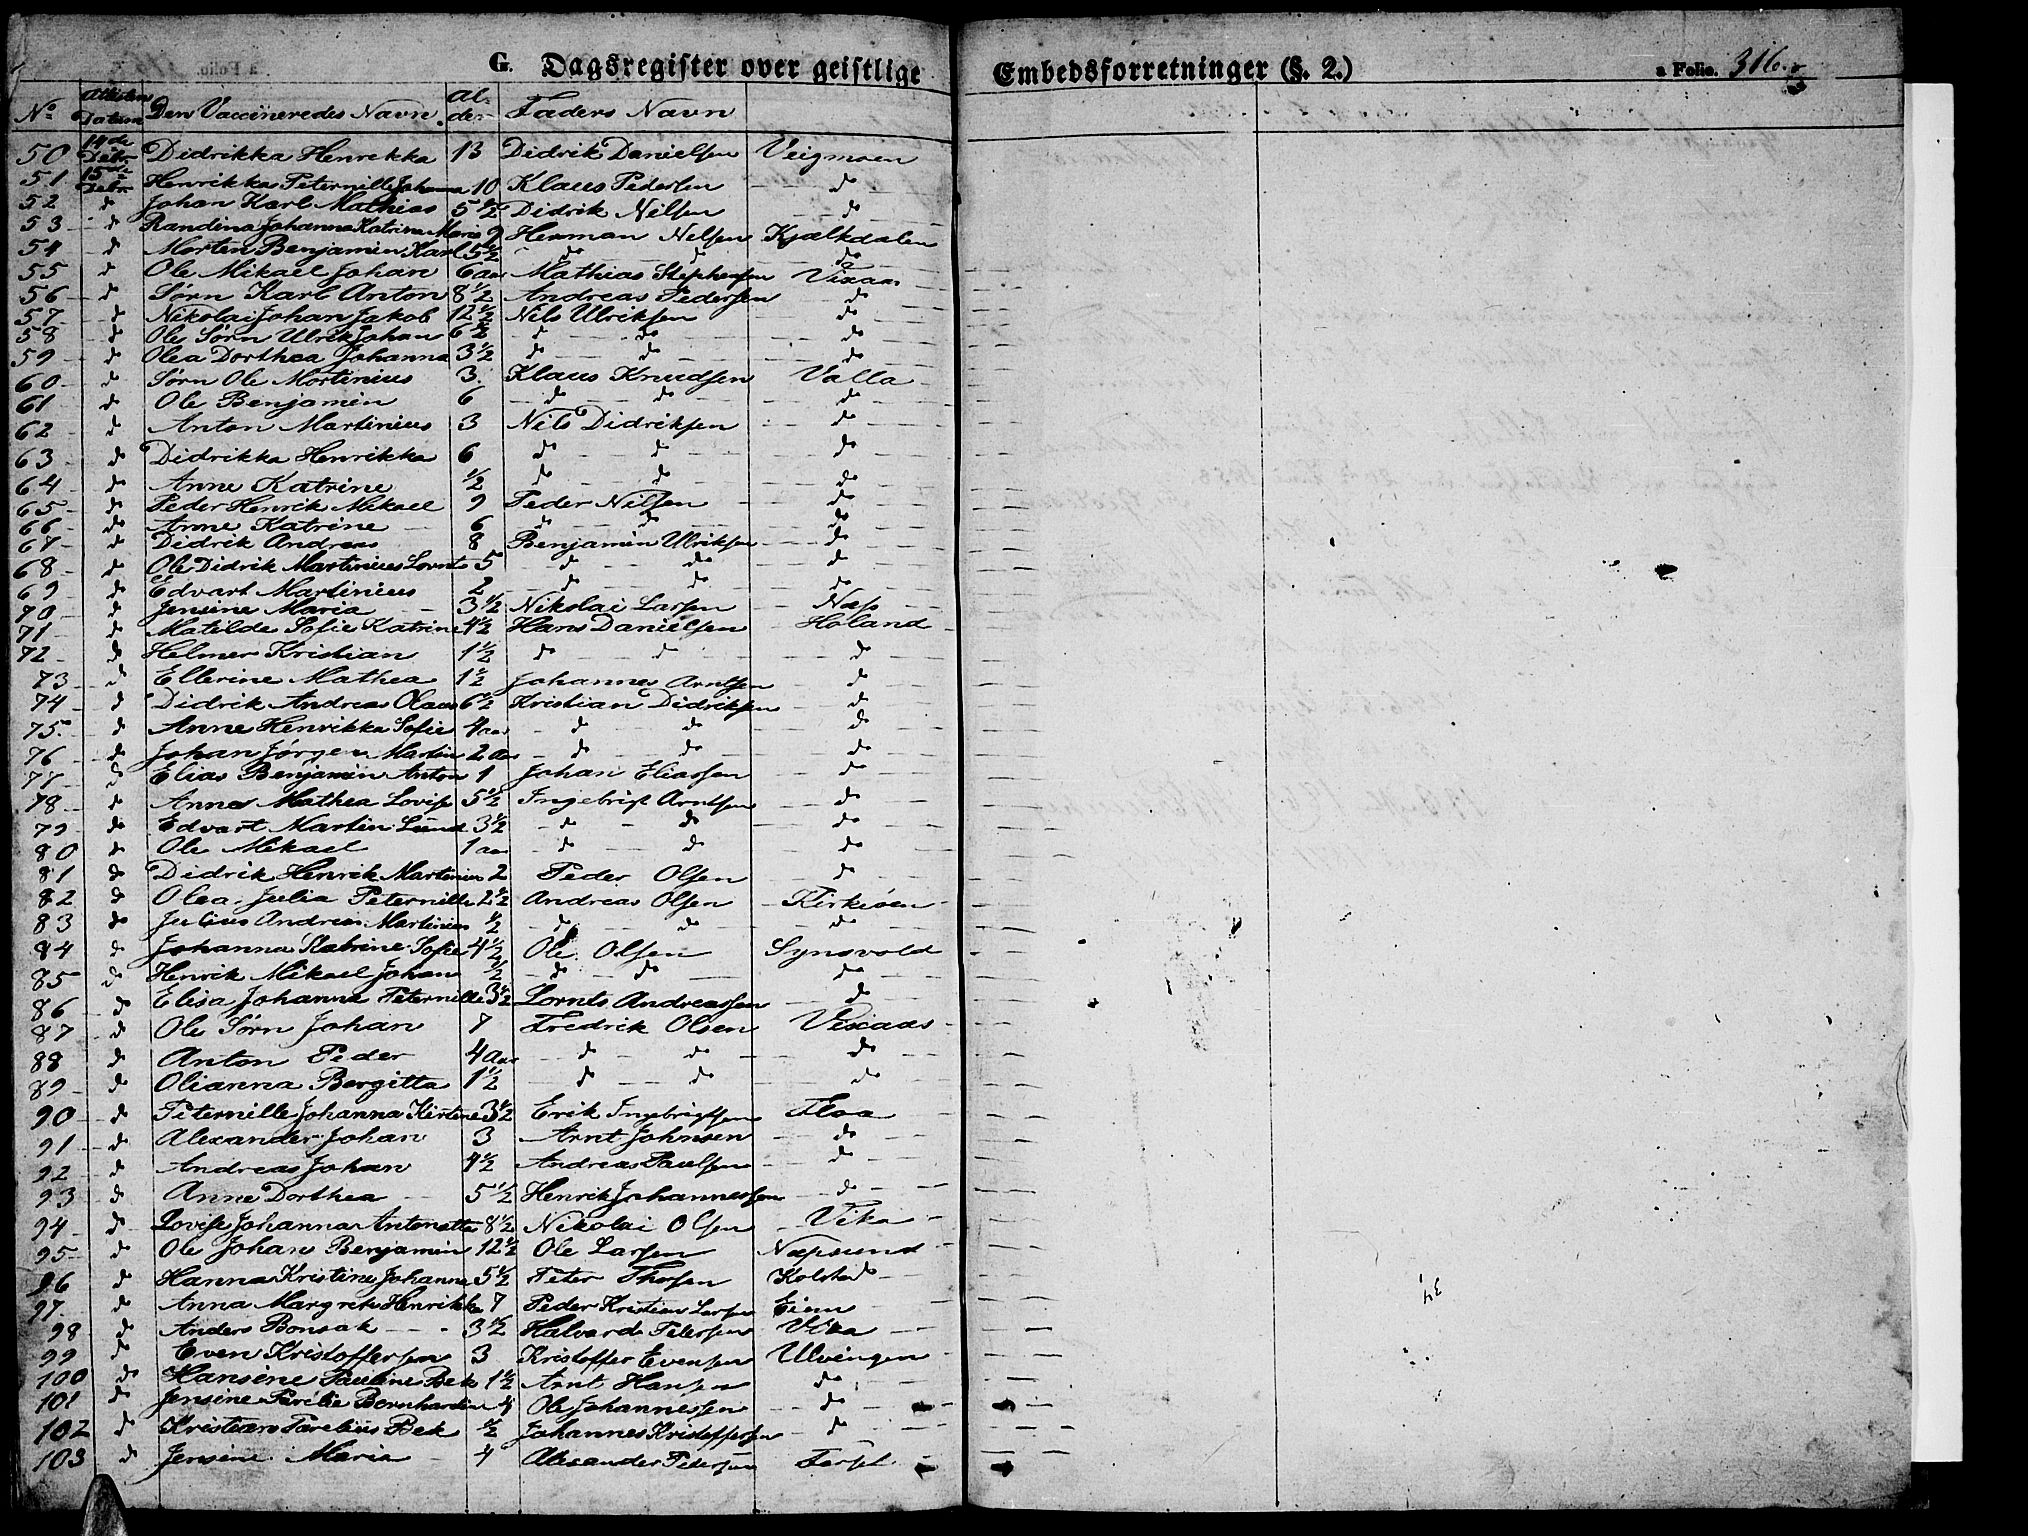 G. Dagsregister over geistlige Embedsforretninger (§. 2.) a Folio. 316.
No Attesten Datum Den Vaccineredes Navn Alder Faders Navn
50 14de Debr. Didrikka Henrekka 13 Didrik Danielsen Veigmoen
51 15de Debr. Henrikka Peternille Johanna 10 Klaus Pedersen do
52 do Johan Karl Mathias 5 1/2 Didrik Nilsen do
53 do Randina Johanna Katrina Maria 9 Herman Nelsen Kjælkdalen
54 do Morten Benjamin Karl 5 1/2 do do do
55 do Ole Mikael Johan 6 aar Mathias Stephensen Vixaas
56 do Sørn Karl Anton 8 1/2 Andreas Pedersen do
57 do Nikolai Johan Jakob 12 1/2 Nils Ulriksen do
58 do Ole Sørn Ulrik Johan 6 1/2 do do do
59 do Olea Dorthea Johanna 3 1/2 do do do
60 do Sørn Ole Mortinius 3 Klaus Knudsen Valla
61 do Ole Benjamin 6 do do do
62 do Anton Martinius 3 Nils Didriksen do
63 do Didrikka Henrikka 6 do do do
64 do Anne Katrine 1/2 do do do
65 do Peder Henrik Mikael 9 Peder Nilsen do
66 do Anne Katrine 6 do do do
67 do Didrik Andreas 8 Benjamin Ulriksen do
68 do Ole Didrik Martinius Lornts 5 do do do
69 do Edvart Martinius 2 do do do
70 do Jensine Maria 3 1/2 Nikolai Larsen Næs
71 do Matilde Sofie Katrine 4 1/2 Hans Danielsen Holand
72 do Helmer Kristian 1 1/2 do do do
73 do Ellerine Mathea 1 1/2 Johannes Arntsen do
74 do Didrik Andreas Olaus 6 1/2 Kristian Didriksen do
75 do Anne Henrikka Sofie 4 aar do do do
76 do Johan Jørgen Martin 2 aar do do do
77 do Elias Benjamin Anton 1 Johan Eliassen do
78 do Anne Mathea Lovise 5 1/2 Ingebrigt Arntsen do
79 do Edvart Martin Lund 3 1/2 do do do
80 do Ole Mikael 1 aar do do do
81 do Didrik Henrik Martinius 2 Peder Olsen do
82 do Olea Julia Peternille 2 1/2 Andreas Olsen Kirkeøen
83 do Julius Andreas Martinius 1/2 do do do
84 do Johanna Katrine Sofie 4 1/2 Ole Olsen Synsvold
85 do Henrik Mikael Johan 1/2 do do do
86 do Elisa Johanna Peternille 3 1/2 Lornts Andreassen do
87 do Ole Sørn Johan 7 Fredrik Olsen Vixaas
88 do Anton Peder 4 aar do do do
89 do Olianna Bergitta 1 1/2 do do do
90 do Peternille Johanna Kirstine 3 1/2 Erik Ingebrigtsen Floa
91 do Alexander Johan 3 Arnt Johnsen do
92 do Andreas Johan 4 1/2 Andreas Paulsen do
93 do Anne Dorthea 5 1/2 Henrik Johannessen do
94 do Lovise Johanna Antonette 8 1/2 Nikolai Olsen Vika
95 do Ole Johan Benjamin 12 1/2 Ole Larsen Næpsund
96 do Hanna Kristine Johanne 5 1/2 Peter Thorsen Kolstad
97 do Anna Margrete Henrikke 7 Peder Kristian Larsen Eien
98 do Anders Bonsak 3 1/2 Halvard Petersen Vika
99 do Even Kristoffersen 3 Kristoffer Evensen Ulvingen
100 do Hansine Pauline Bek 1 1/2 Arnt Hansen do
101 do Jensine Parelie Bernhardine 4 Ole Johannessen do
102 do Kristian Parelius Bek 1/2 Johannes Kristoffersen do
103 do Jensine Maria 4 Alexander Pedersen Forset